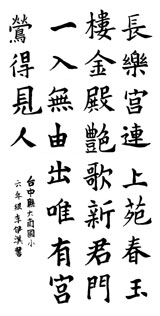 長樂宮連上苑春玉
樓金殿艷歌新君門
一入無由出唯有宮
鶯得見人
台中縣大國小
六年級李伊淇書